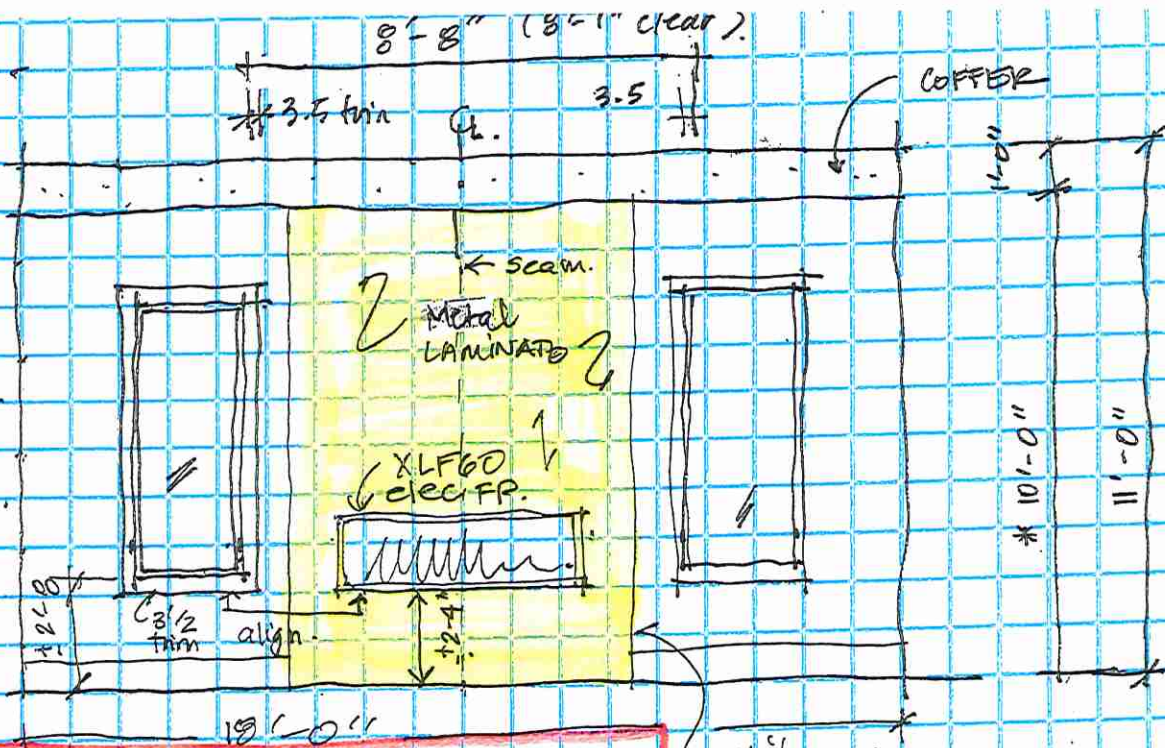 8'-8" (8'-1" clear).
3.5 trim
3.5
CL.
COFFER
1'-0"
seam.
Metal
LAMINATE
* 10'-0"
11'-0"
XLF60
elec FP.
± 2'-0
3 1/2
trim
align.
±2-4"
18'-0"